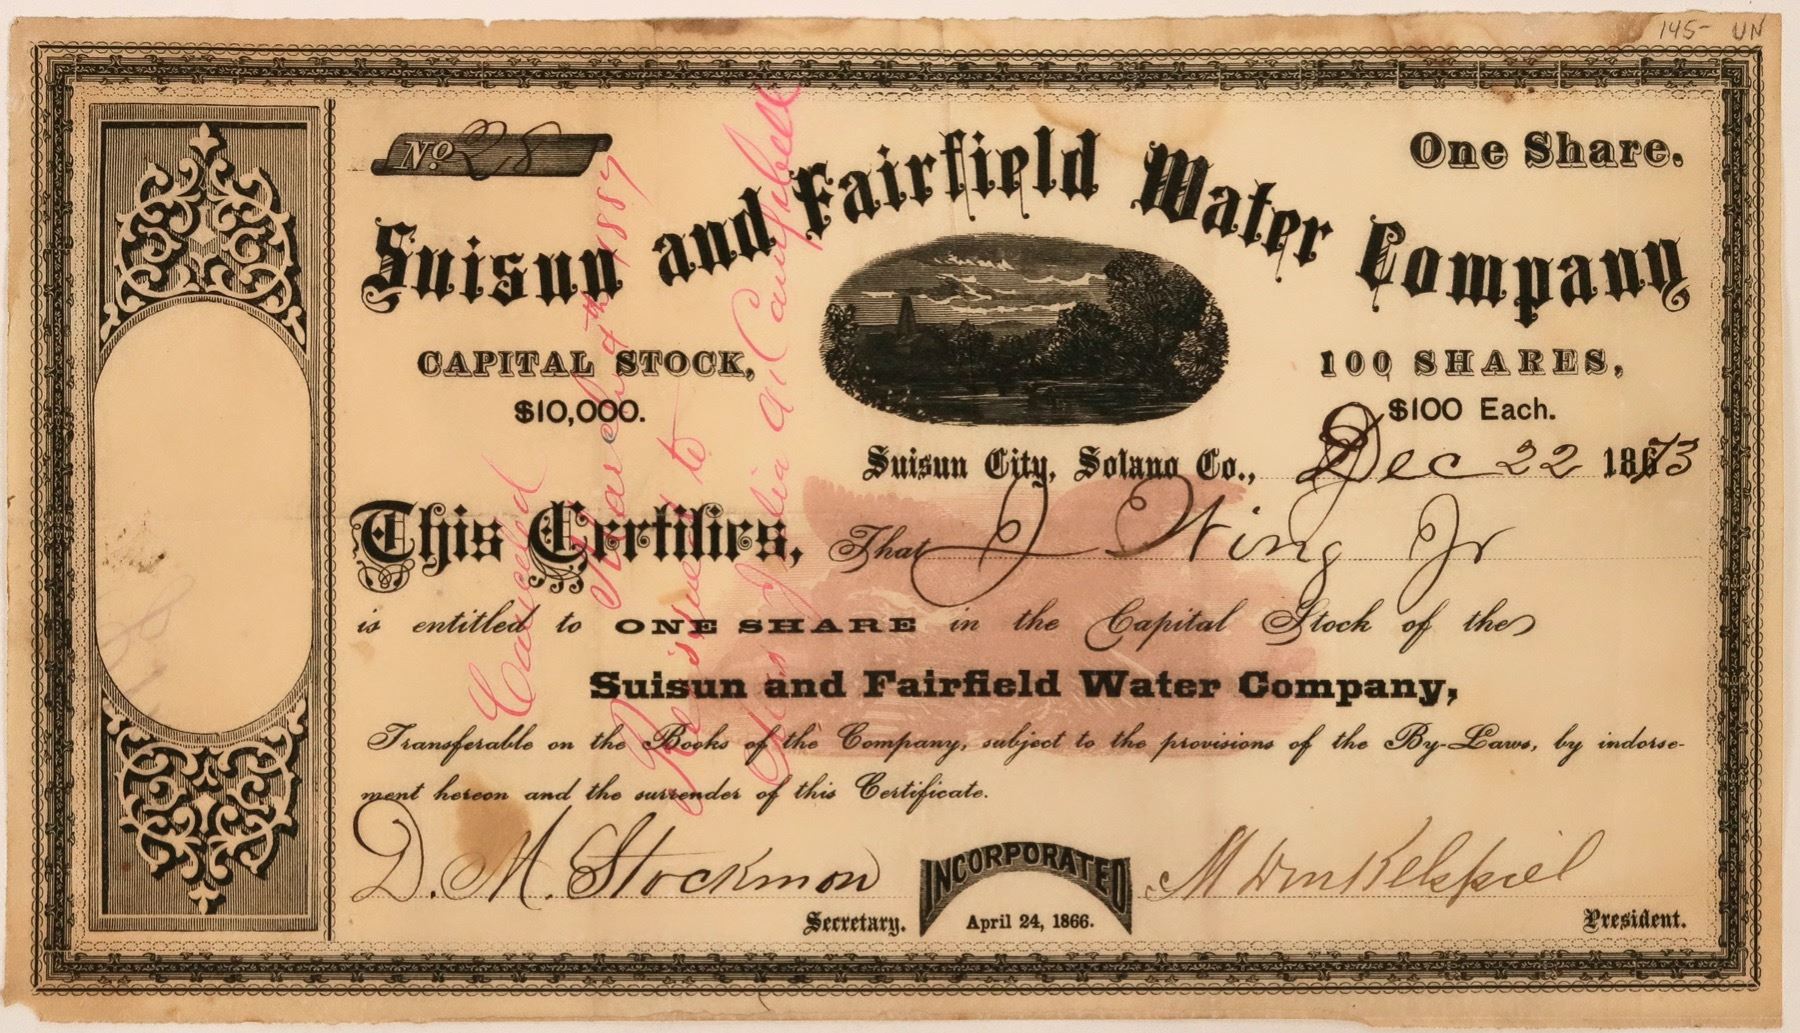 145- UN
No 28
One Share.
Suisun and Fairfield Water Company
CAPITAL STOCK,
$10,000.
100 SHARES,
$100 Each.
Suisun City, Solano Co., Dec 22 1873
This Certifies, That J Wing Jr
is entitled to ONE SHARE in the Capital Stock of the
Suisun and Fairfield Water Company,
Transferable on the Books of the Company, subject to the provisions of the By-Laws, by indorse-
ment hereon and the surrender of this Certificate.
D. M. Stockmon
Secretary.
INCORPORATED
April 24, 1866.
President.
Cancelled
March 4th 1887
Reissued to
Julia A Campbell